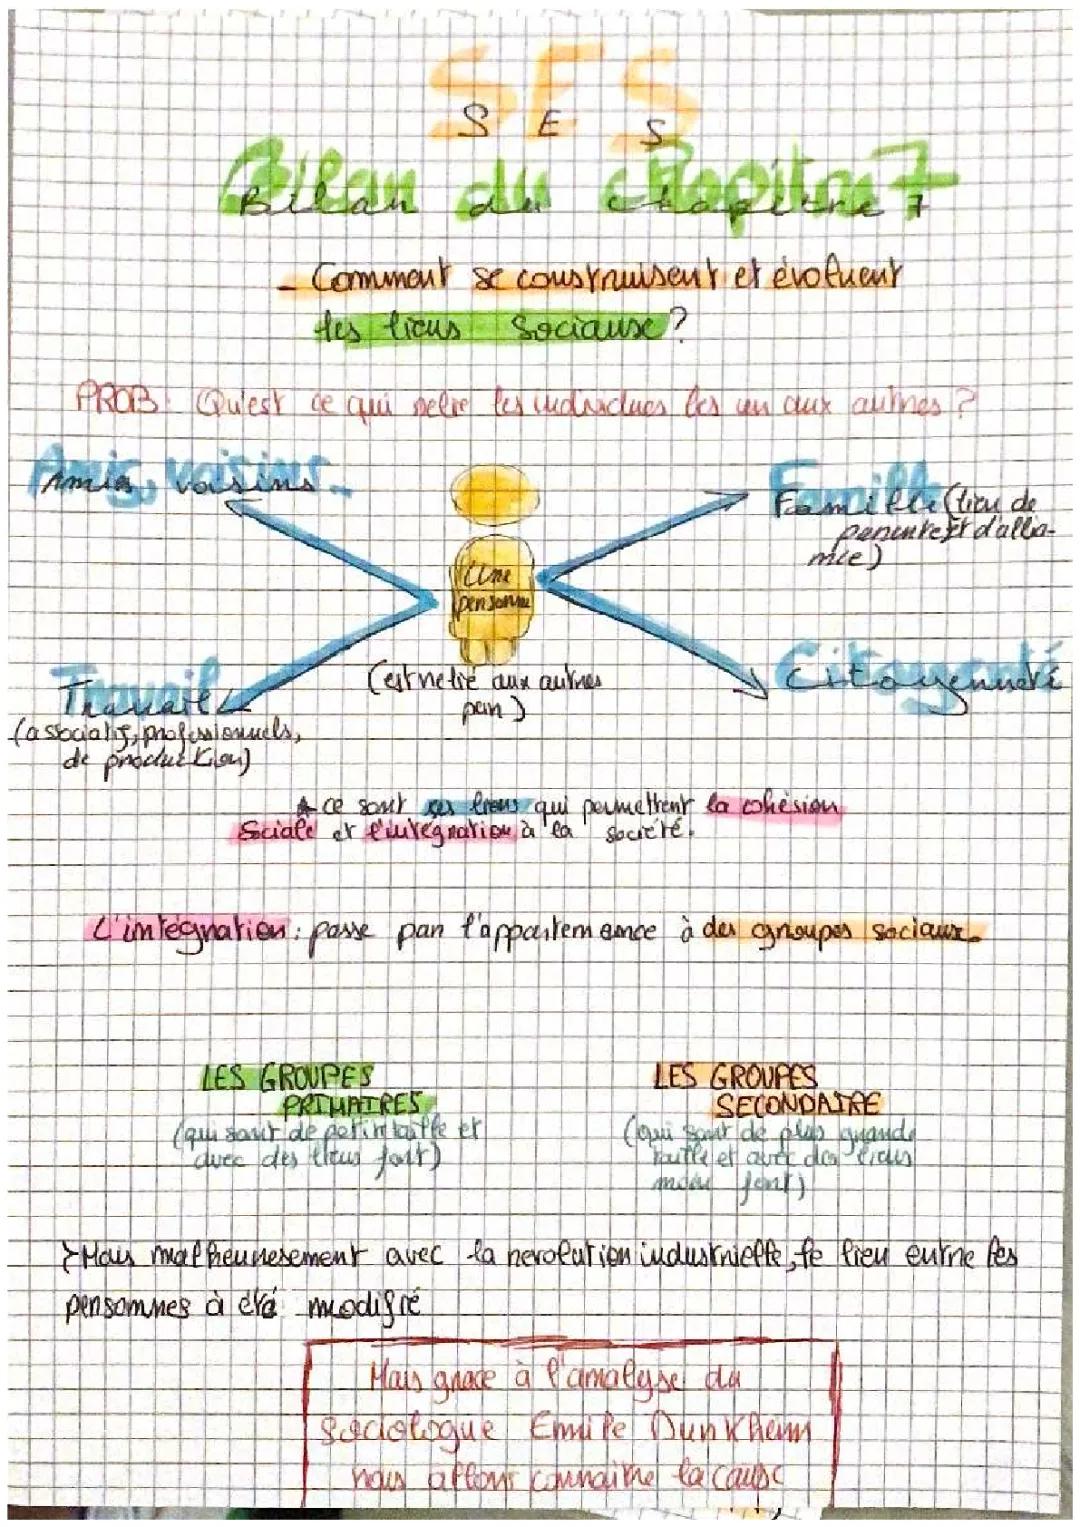 SES
Bilan du chapitre 7
- Comment se construisent et évoluent
les liens Sociause?
PROB: Qu'est ce qui relie les individues les un aux autres?
Amis, voisins
Famille (lien de
parenté et d'allia-
nce)
Une
personne
(est relié aux autres
par)
Travail
(associatifs, professionnels,
de production)
Citoyenneté
ce sont ses liens qui permettent la cohésion
Sciale et l'intégration à la société.
L'intégration: passe par l'appartemence à des groupes sociaux.
LES GROUPES
PRIMAIRES
(qui sont de petit taille et
avec des liens fort)
LES GROUPES
SECONDAIRE
(qui sont de plus grande
taille et avec des liens
moin fort)
> Mais malheuresement avec la revolution industrielle, le lien entre les
personnes à été modifié
Mais grace à l'analyse du
Sociologue Emile Durkheim
nous allons connaitre la cause